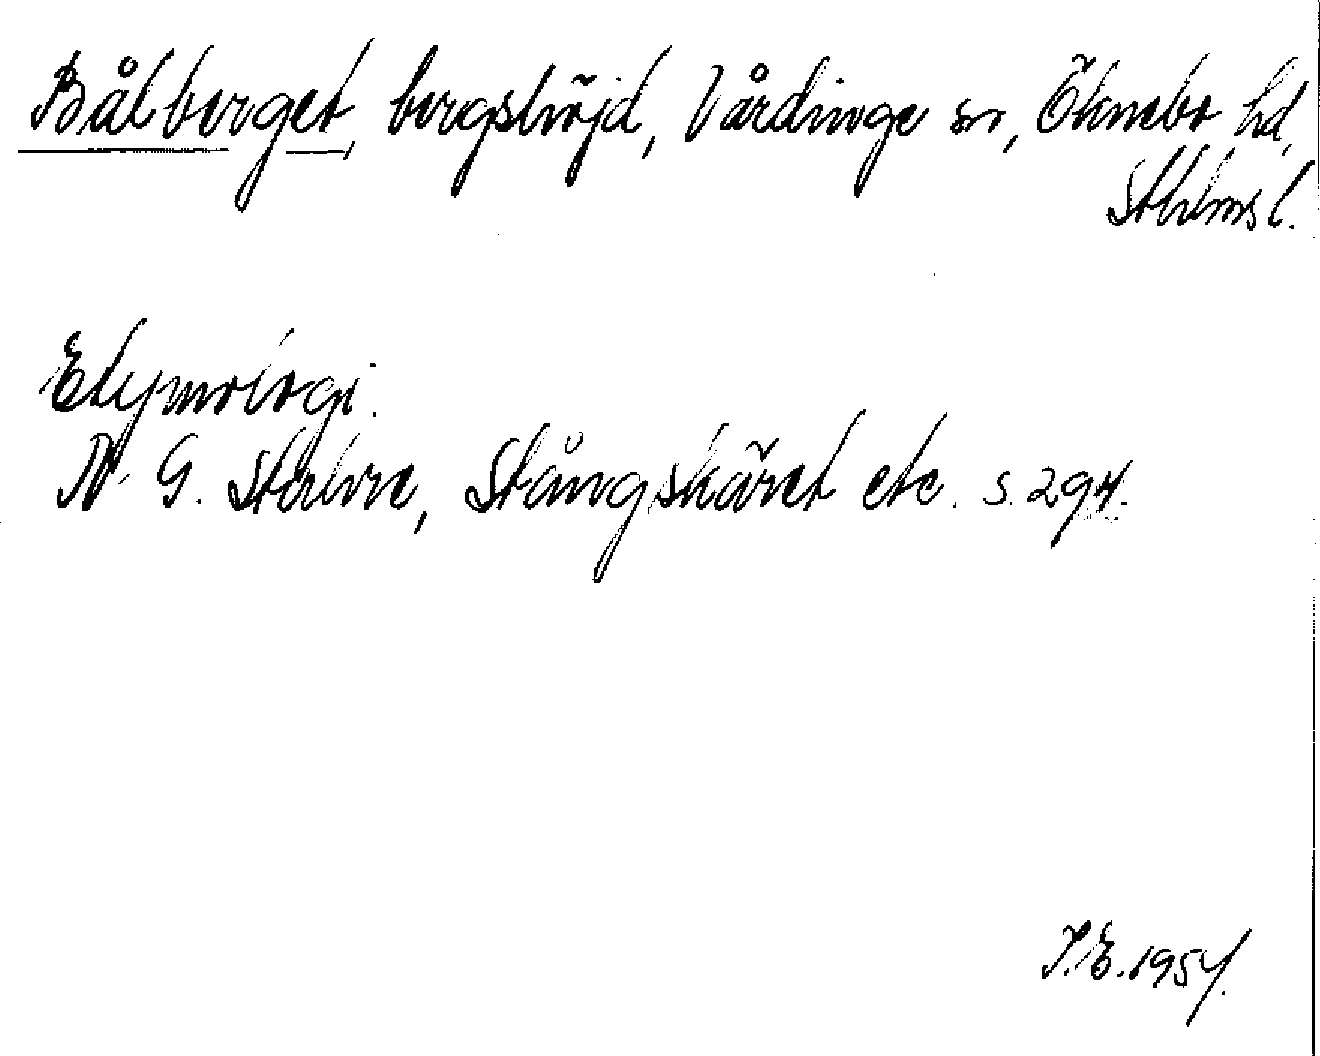 Bålberget, bergshöjd, Vårdinge sn, Öknebo hd,
Sthlms l.
Etymologi.
N. G. Stahre, Stångskäret etc. s. 294.
I.E. 1954.